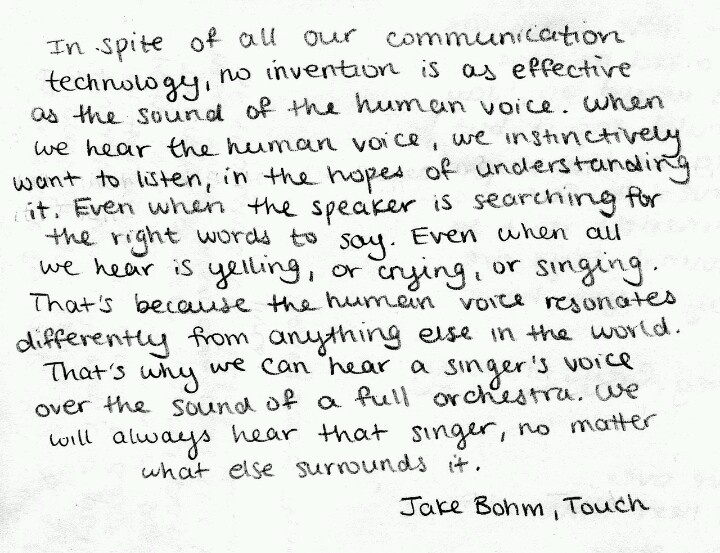 In spite of all our communication
technology, no invention is as effective
as the sound of the human voice. When
we hear the human voice, we instinctively
want to listen, in the hopes of understanding
it. Even when the speaker is searching for
the right words to say. Even when all
we hear is yelling, or crying, or singing.
That's because the human voice resonates
differently from anything else in the world.
That's why we can hear a singer's voice
over the sound of a full orchestra. We
will always hear that singer, no matter
what else surrounds it.
Jake Bohm, Touch